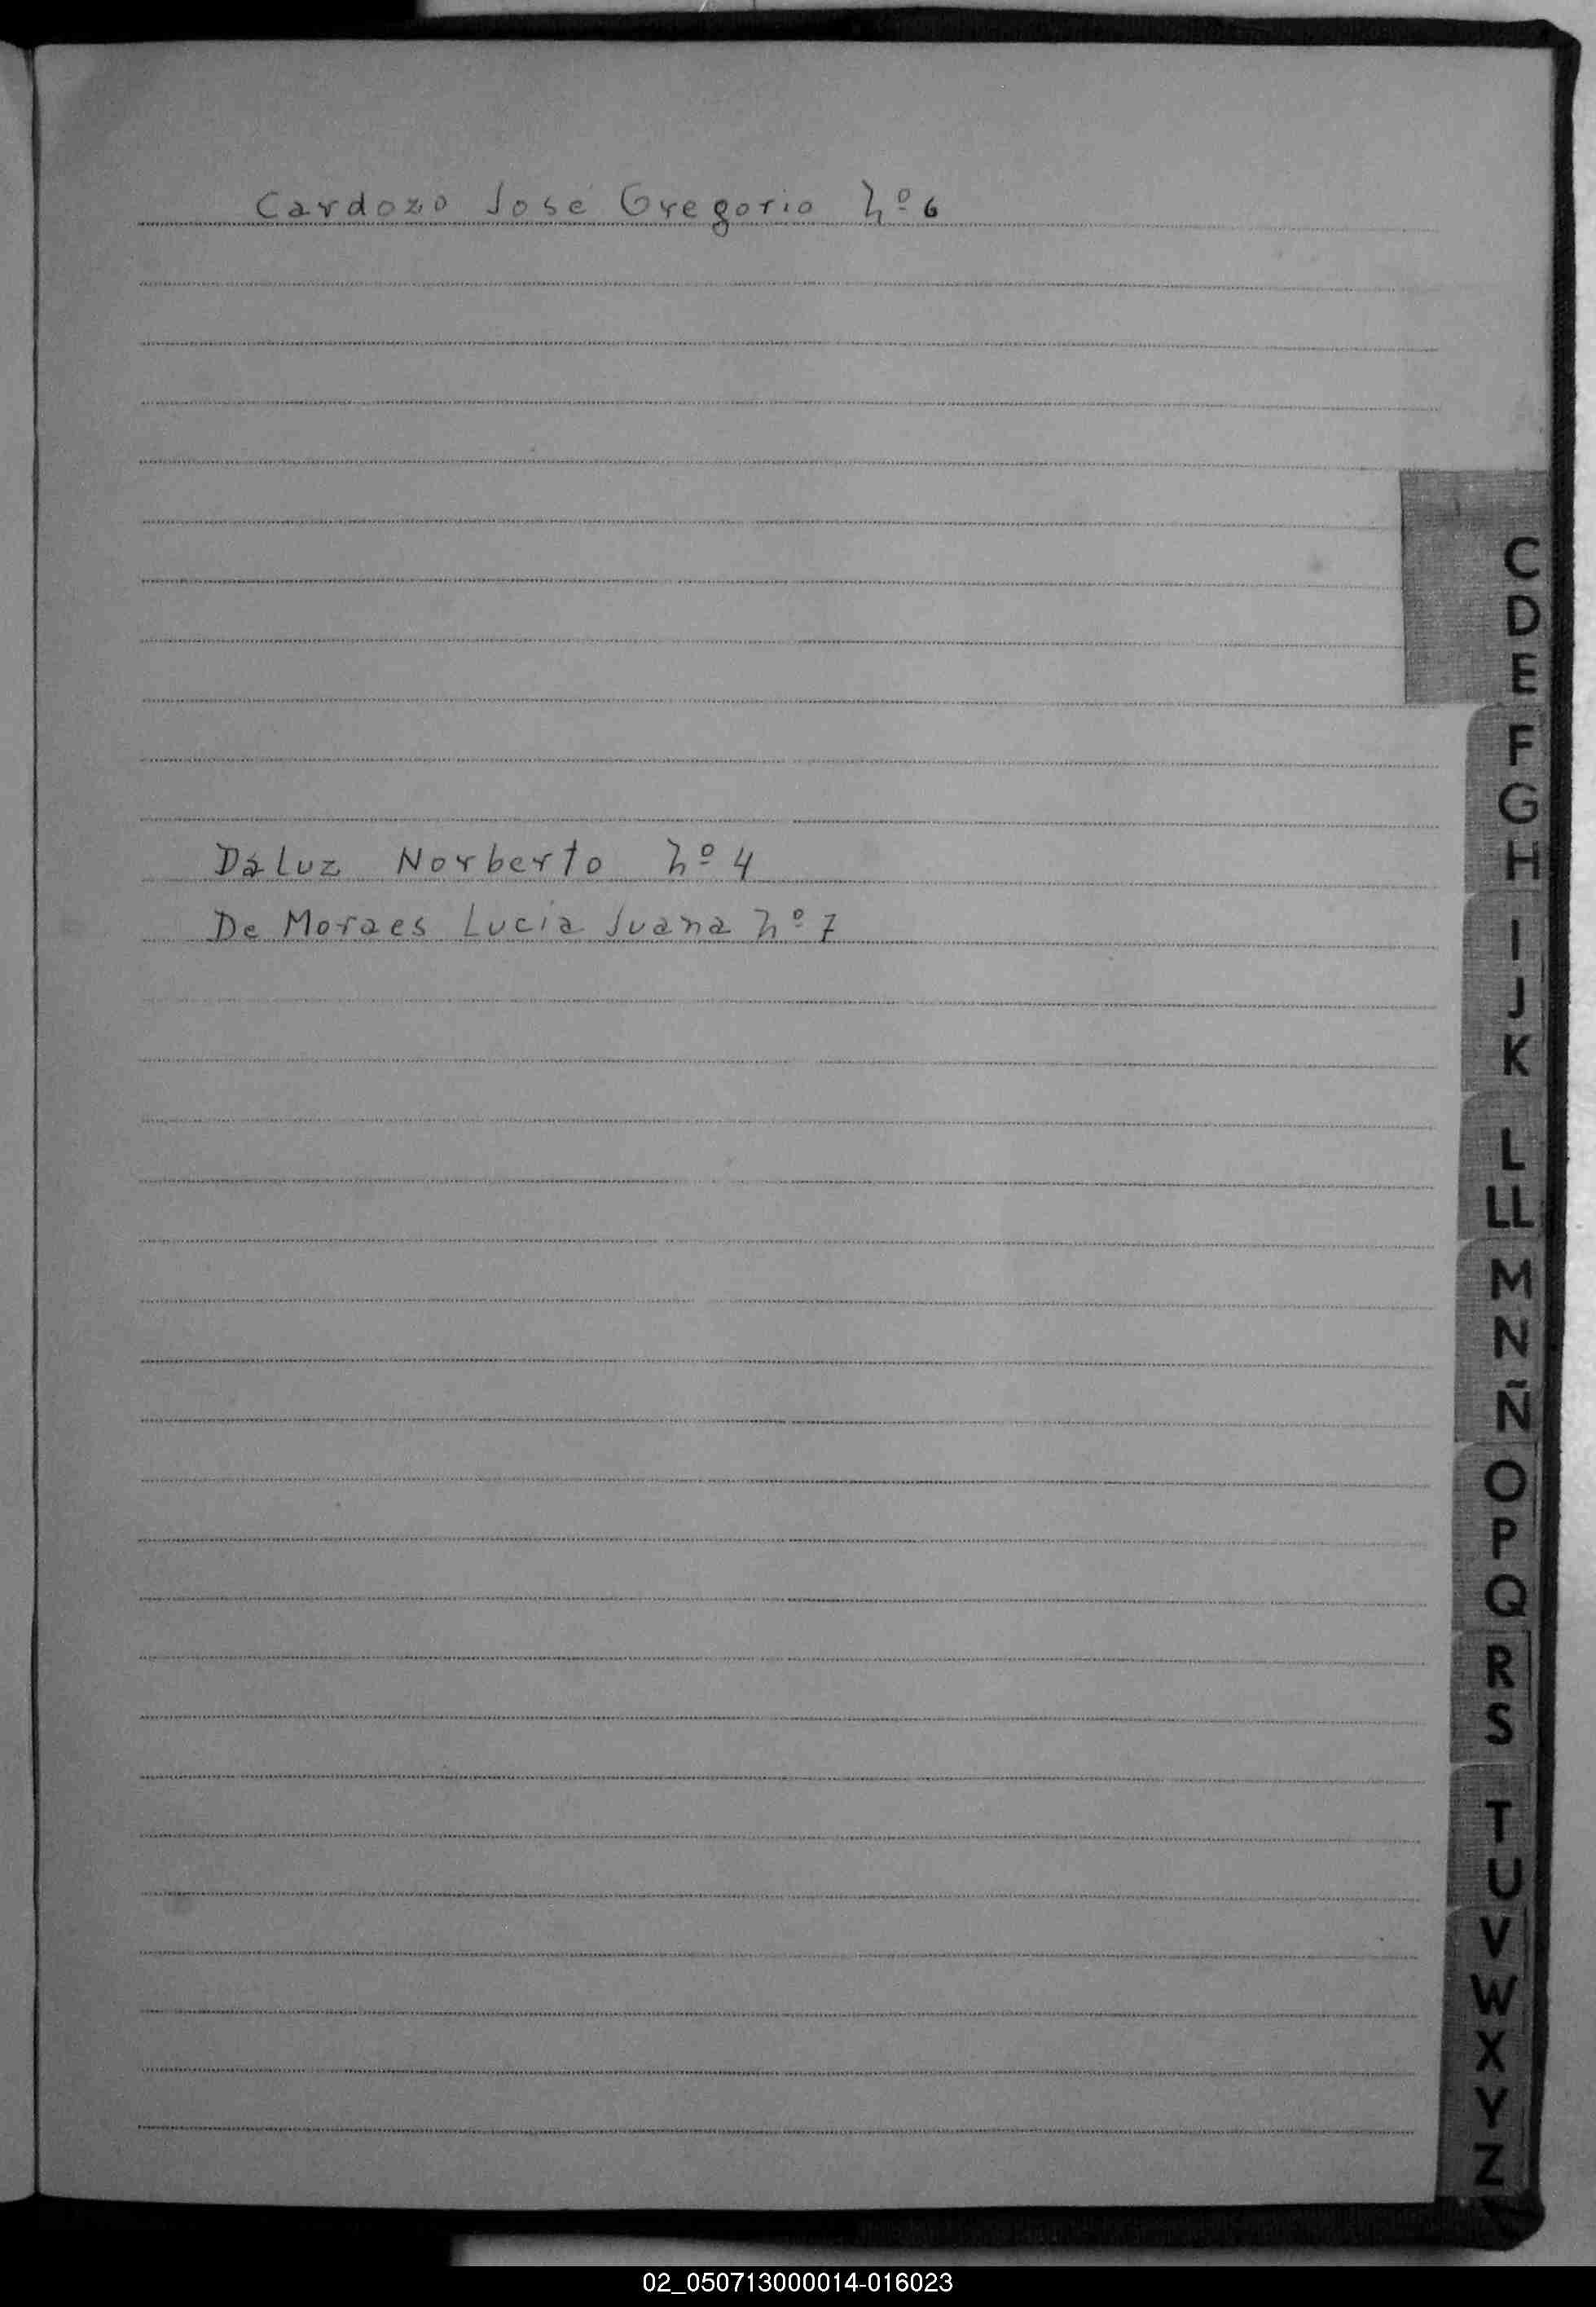 Cardozo José Gregorio nº 6
C
D
E
F
G
H
Daluz Norberto nº 4
De Moraes Lucia Juana nº 7
I
J
K
L
LL
M
N
Ñ
O
P
Q
R
S
T
U
V
W
X
Y
Z
02_050713000014-016023